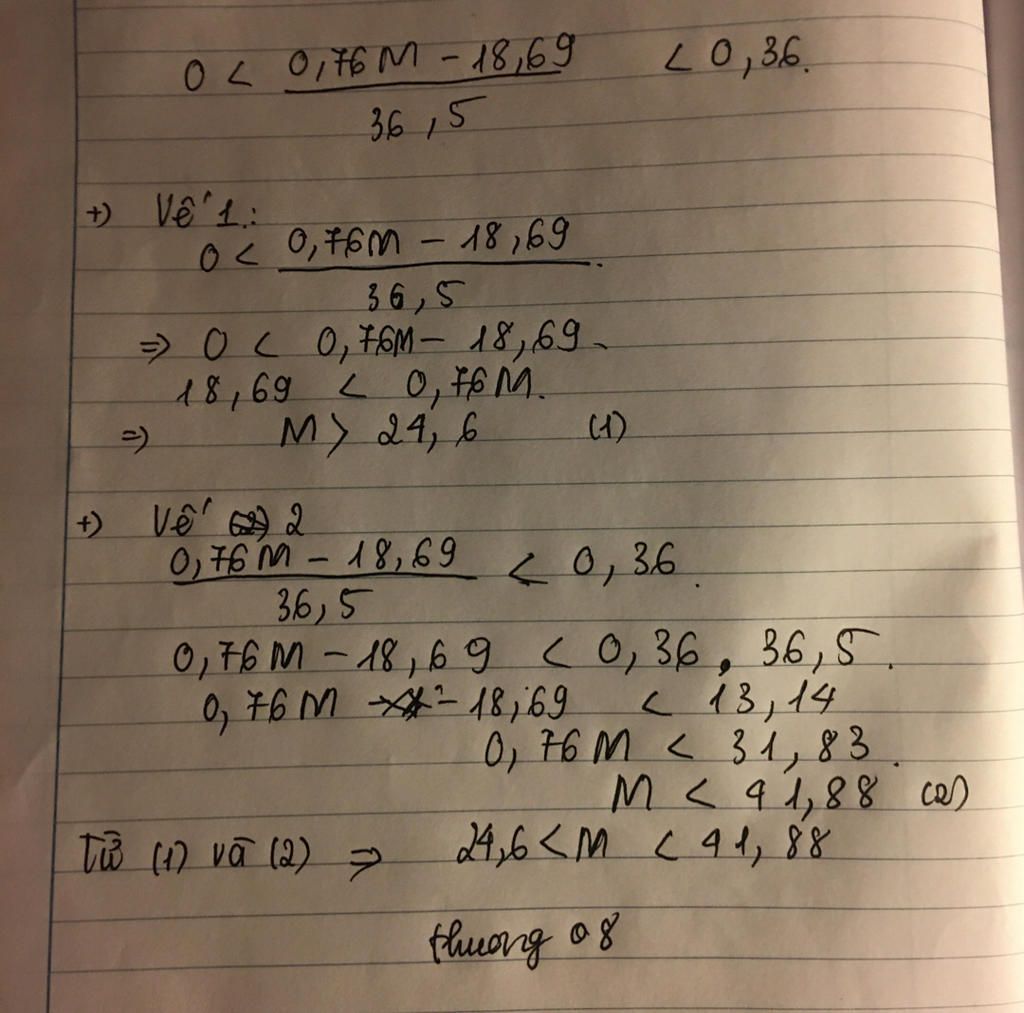 0 < (0,76M - 18,69)/(36,5) < 0,36.
+) Vế 1:
0 < (0,76M - 18,69)/(36,5).
=> 0 < 0,76M - 18,69.
18,69 < 0,76M.
=> M > 24,6 (1)
+) Vế 2
(0,76M - 18,69)/(36,5) < 0,36.
0,76M - 18,69 < 0,36 . 36,5.
0,76M - 18,69 < 13,14
0,76M < 31,83.
M < 41,88 (2)
Từ (1) và (2) => 24,6 < M < 41,88
thuong 08